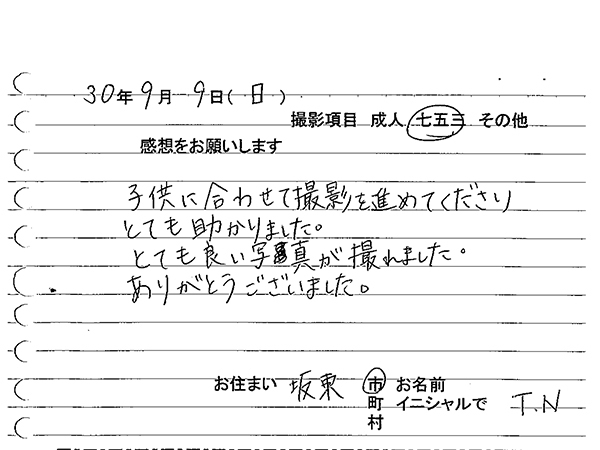 30年9月9日(日)
撮影項目 成人 七五三 その他
感想をお願いします
子供に合わせて撮影を進めてくださり
とても助かりました。
とても良い写真が撮れました。
ありがとうございました。
お住まい 坂東 市 お名前
町 イニシャルで T.N
村